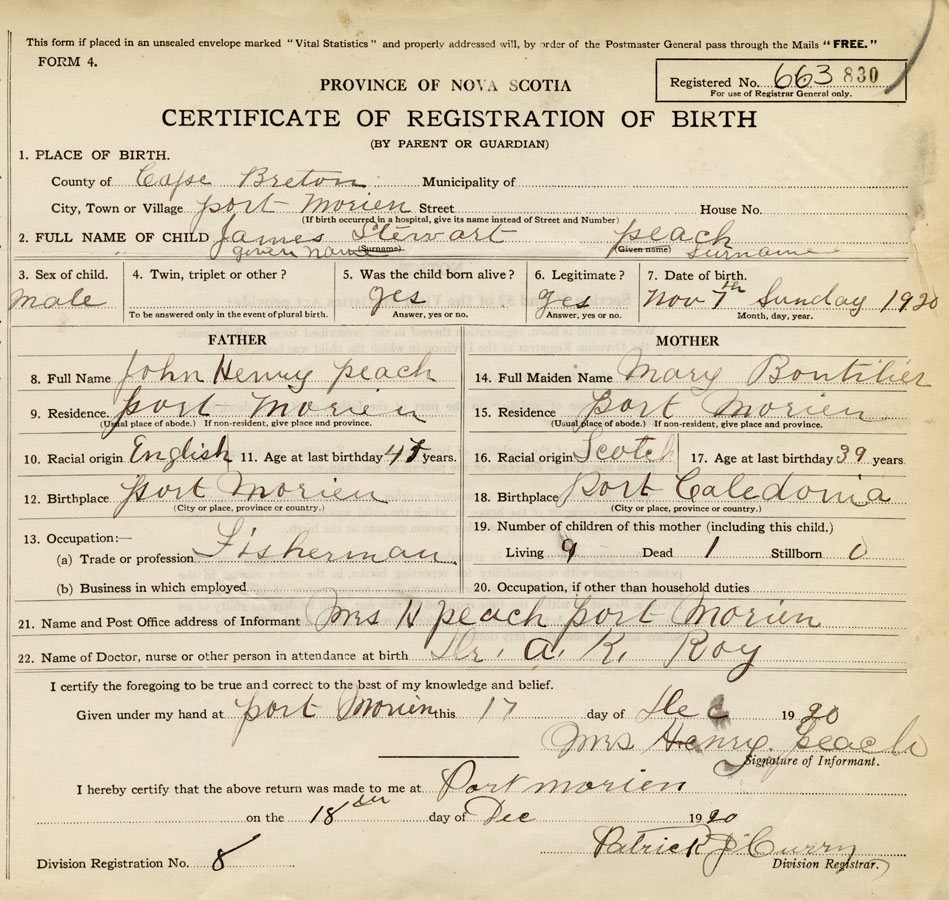 This form if placed in an unsealed envelope marked "Vital Statistics" and properly addressed will, by order of the Postmaster General pass through the Mails "FREE."
FORM 4.
Registered No. 663 830
For use of Registrar General only.
PROVINCE OF NOVA SCOTIA
CERTIFICATE OF REGISTRATION OF BIRTH
(BY PARENT OR GUARDIAN)
1. PLACE OF BIRTH.
County of Cape Breton Municipality of
City, Town or Village port Morien Street House No.
(If birth occurred in a hospital, give its name instead of Street and Number)
2. FULL NAME OF CHILD James Stewart peach
given name (Surname) (Given name) Surname
3. Sex of child. 4. Twin, triplet or other? 5. Was the child born alive? 6. Legitimate? 7. Date of birth.
male yes yes Nov 7th Sunday 1920
To be answered only in the event of plural birth. Answer, yes or no. Answer, yes or no. Month, day, year.
FATHER
8. Full Name John Henry peach
9. Residence. port Morien
(Usual place of abode.) If non-resident, give place and province.
10. Racial origin English 11. Age at last birthday 47 years.
12. Birthplace port Morien
(City or place, province or country.)
13. Occupation:—
(a) Trade or profession Fisherman
(b) Business in which employed
MOTHER
14. Full Maiden Name Mary Boutilier
15. Residence port Morien
(Usual place of abode.) If non-resident, give place and province.
16. Racial origin Scotch 17. Age at last birthday 39 years.
18. Birthplace Port Caledonia
(City or place, province or country.)
19. Number of children of this mother (including this child.)
Living 9 Dead 1 Stillborn 0
20. Occupation, if other than household duties
21. Name and Post Office address of Informant Mrs H peach port Morien
22. Name of Doctor, nurse or other person in attendance at birth Dr. A. K. Roy
I certify the foregoing to be true and correct to the best of my knowledge and belief.
Given under my hand at port Morien this 17 day of Dec 1920
Mrs Henry peach
Signature of Informant.
I hereby certify that the above return was made to me at Port morien
on the 18th day of Dec 1920
Patrick J Curry
Division Registration No. 8 Division Registrar.